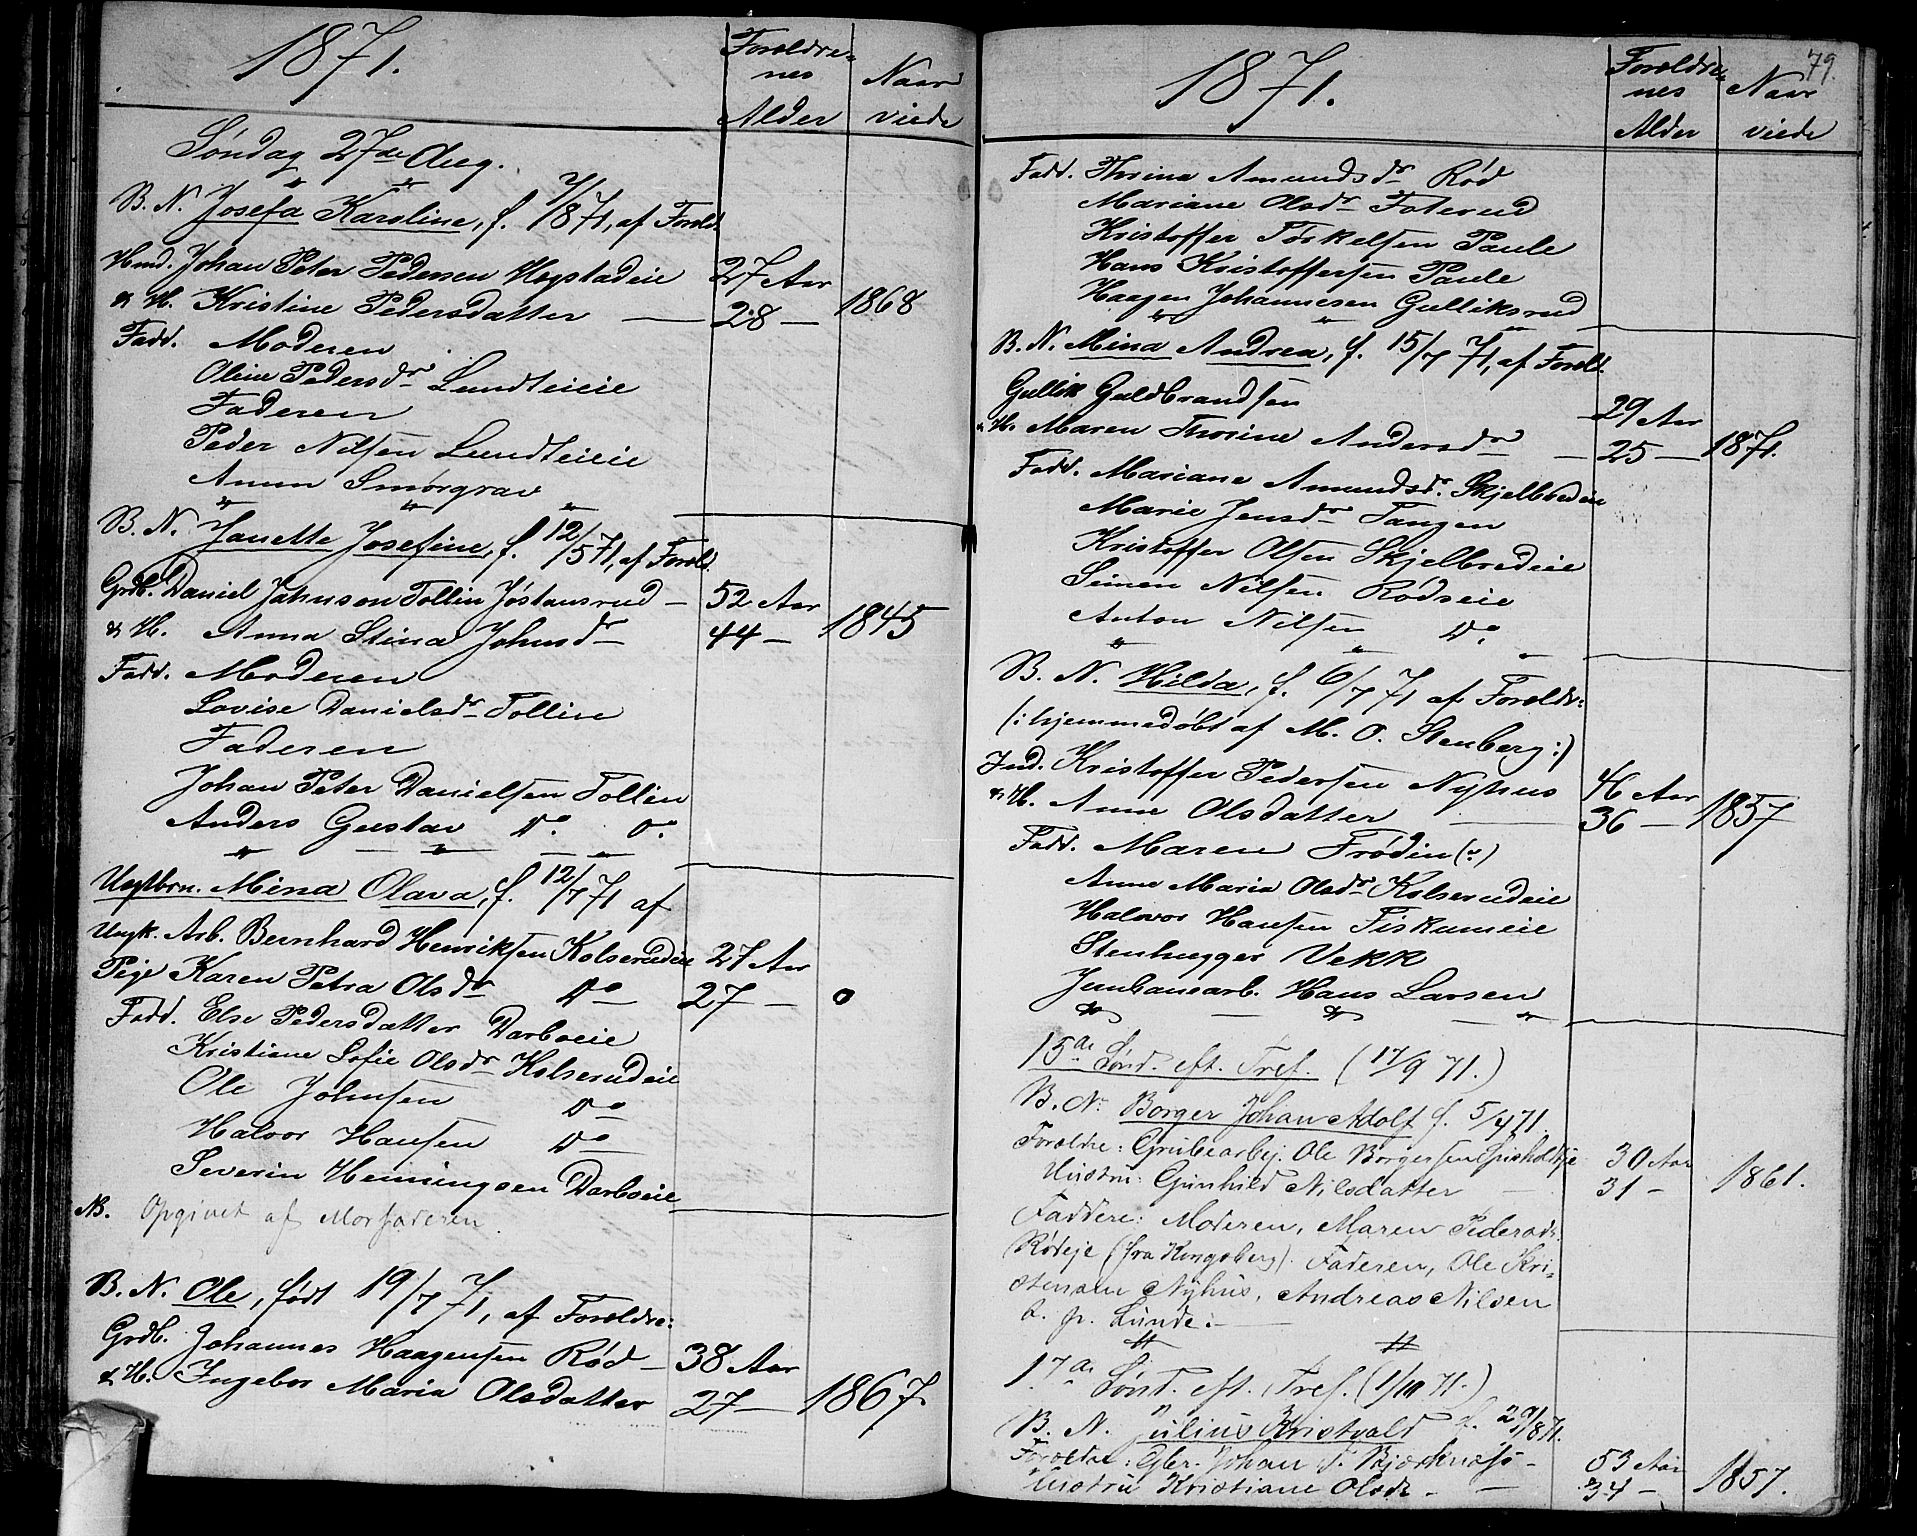 1871.
Foreldre-
nes
Alder
Naar
viede
Søndag 27de Aug.
B. N. Josefa Karoline, f. 7/8 71, af Foreld.
Hmd. Johan Peter Pedersen Hogstadeie 27 Aar
& H. Kristine Pedersdatter — 28 — 1868
Fadd. Moderen
Oline Pedersdr Lundteieie
Faderen
Peder Nilsen Lundteieie
Anun Smørgrav
B. N. Janette Josefine, f. 12/5 71, af Foreld.
Grdb. Daniel Johnson Tollin Jøstansrud — 52 Aar
& H. Anna Stina Johnsdr 44 — 1845
Fadd. Moderen
Lovise Danielsdr Tollin
Faderen
Johan Peter Danielsen Tollin
Anders Gustav Do. o.
Uegtbrn. Mina Olava, f. 12/7 71 af
Ungk. Arb. Bernhard Henriksen Kolserudeie 27 Aar
Pige Karen Petra Olsdr Do 27 — 0
Fadd. Else Pedersdatter Darboeie
Kristiane Sofie Olsdr Kolserudeie
Ole Johnsen Do
Halvor Hansen Do
Severin Henningsen Darboeie
NB. Opgivet af Morfaderen.
B. N. Ole, født 19/7 71, af Foreldre:
Grdb. Johannes Haagensen Rød — 38 Aar
& H. Ingebor Maria Olsdatter 27 — 1867.
79.
1871.
Foreldre-
nes
Alder
Naar
viede
Fadd. Thrina Amundsdr Rød
Mariane Olsdr Foterud
Kristoffer Torkelsen Paule
Hans Kristoffersen Paule
Haagen Johannesen Gulliksrud
B. N. Mina Andrea, f. 15/7 71, af Foreld.
Gullik Guldbrandsen 29 Aar
& H. Maren Thorine Andersdr — 25 — 1871.
Fadd. Mariane Amundsdr. Skjelbredeie
Marie Jensdr Tangen
Kristoffer Olsen Skjelbredeie
Simen Nilsen Rødseie
Anton Nilsen Do.
B. N. Hilda, f. 6/7 71 af Foreldr:
(: hjemmedøbt af M. O. Stenberg :)
Ind. Kristoffer Pedersen Nyhus 46 Aar
& H. Anne Olsdatter 36 — 1857
Fadd. Maren Frødin (?)
Anne Maria Olsdr Kolserudeie
Halvor Hansen Fiskumeie
Stenhugger Vekk
Jernbanearb. Hans Larsen
15de Sønd. eft. Tref. (17/9 71.)
B. N. Borger Johan Adolf f. 5/4 71.
Foreldre: Grubearbej. Ole Borgersen Spisholteje 30 Aar
Hustru: Gunhild Nilsdatter — 31 — 1861.
Faddere: Moderen, Maren Pedersdr.
Rødeje (fra Kongsberg). Faderen, Ole Kri-
stensen Nyhus, Andreas Nilsen
t. p. Lunde. —
17de Sønd. eft. Tref. (1/10 71.)
B. N. Julius Kristvald f. 29/8 71.
Foreldre: Gbr. Johan J. Bjørknæss — 53 Aar
Hustru Kristiane Olsdr. — 34 — 1857.